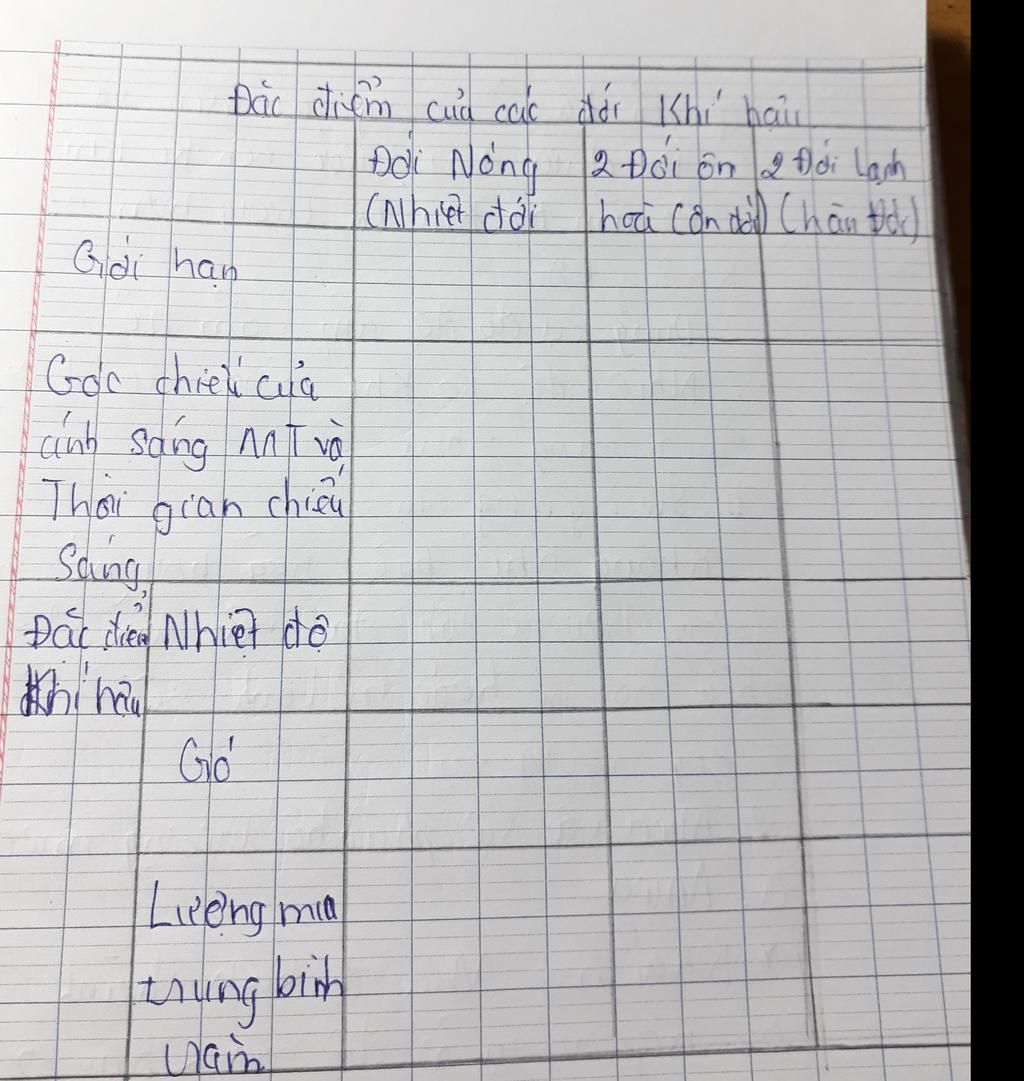 Đặc điểm của các đới Khí hậu
Đới Nóng 2 Đới ôn 2 Đới Lạnh
(Nhiệt đới hoà (ôn đới) (hàn Đới)
Giới hạn
Góc chiếu của
ánh sáng MT và
Thời gian chiếu
Sáng
Đặc điểm Nhiệt độ
Khí hậu
Gió
Lượng mưa
trung bình
năm